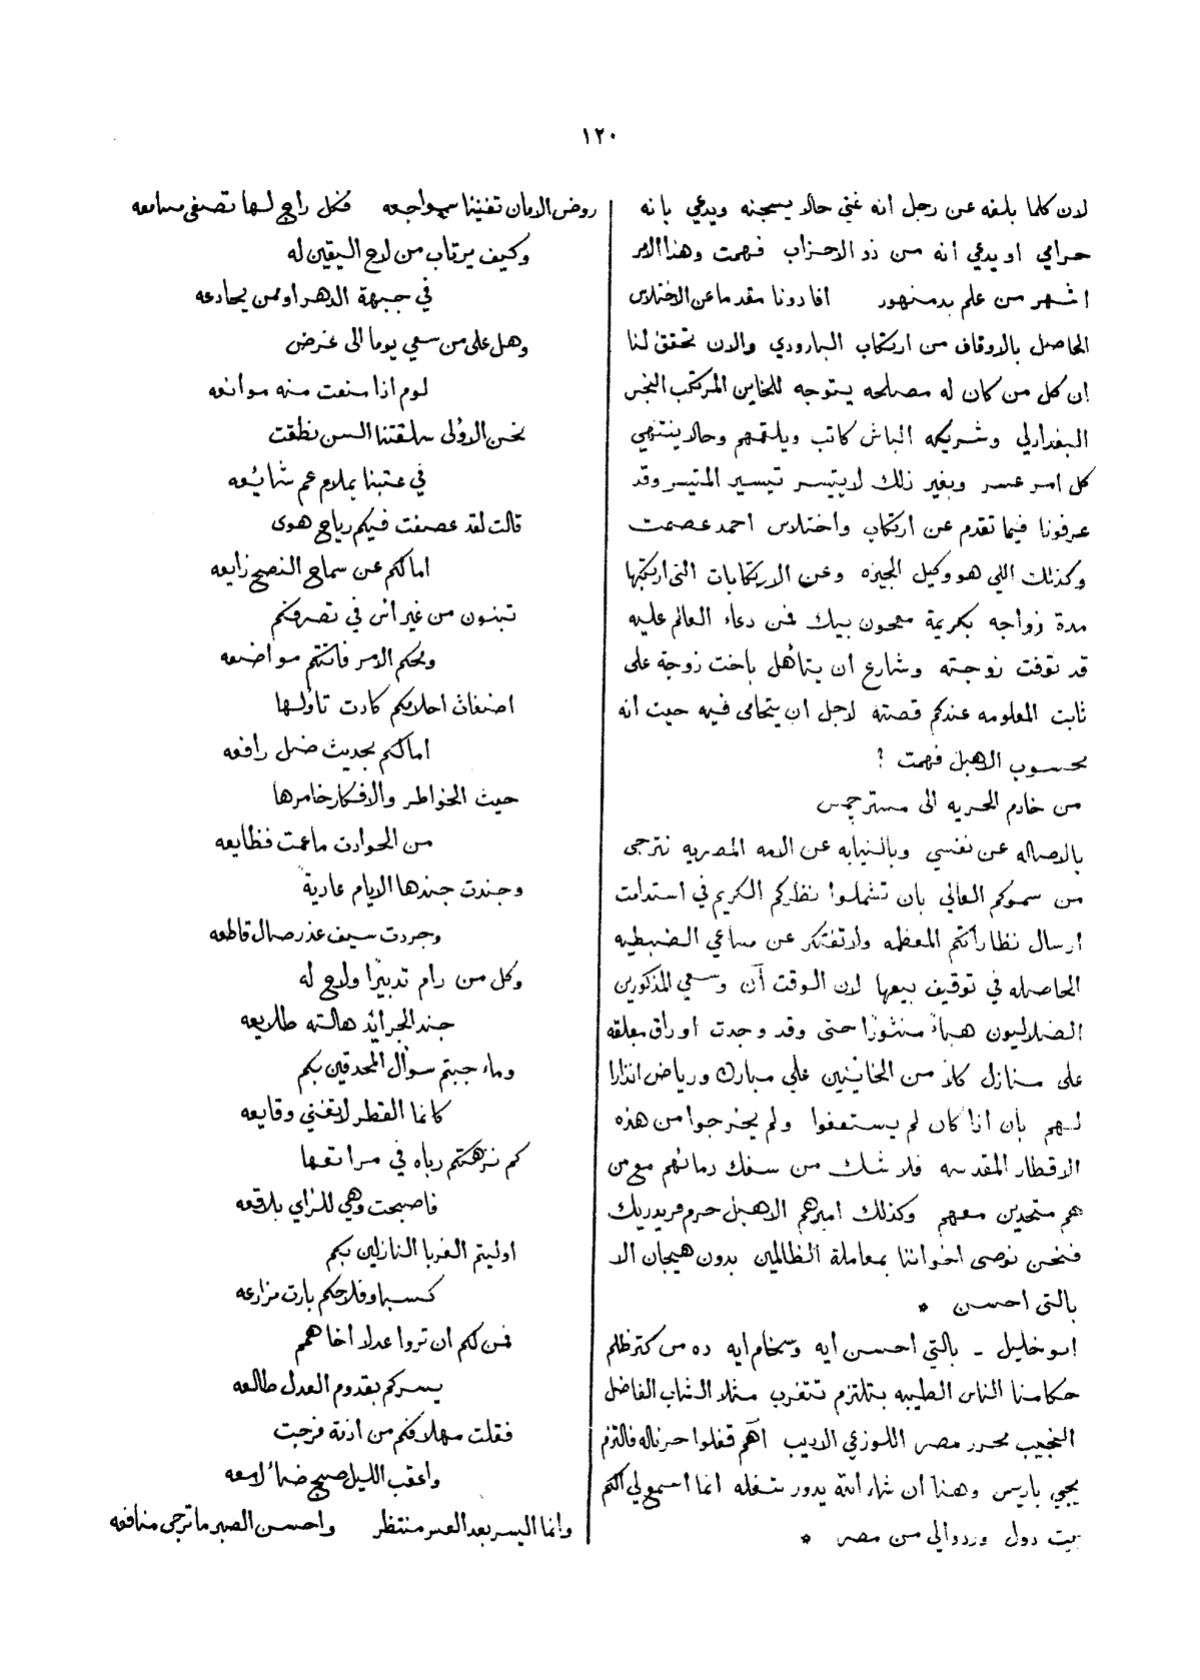 ١٢٠
لان كلما بلغه عن رجل انه غني حالا يسجنه ويدعي بانه
حرامي او يدعي انه من ذو الاحزاب فهمت وهذا الامر
اشهر من علم بدمنهور افادونا مقدما عن الاختلاس
الحاصل بالاوقاف من ارتكاب البارودي والان تحقق لنا
ان كل من كان له مصلحه يتوجه للخاين المرتكب النجس
البغدادلي وشريكه الباش كاتب ويلقمهم وحالا ينتهي
كل امر عسر وبغير ذلك لا يتيسر تيسير المتيسر وقد
عرفونا فيما تقدم عن ارتكاب واختلاس احمد عصمت
وكذلك اللي هو وكيل الجيزه وعن الارتكابات التى ارتكبها
مدة زواجه بكريمة معجون بيك فمن دعاء العالم عليه
قد توفت زوجته وشارع ان يتأهل باخت زوجة على
ثابت المعلومه عندكم قصته لاجل ان يتحامى فيه حيث انه
محسوب الاهبل فهمت ؟
من خادم الحريه الى مستر جمس
بالاصاله عن نفسي وبالنيابه عن الامه المصريه نترجى
من سموكم العالي بان تشملوا نظركم الكريم في استدامت
ارسال نظاراتكم المعظمه ولا تفتكر عن مساعي الضبطيه
الحاصله في توقيف بيعها لان الوقت آن وسعي المذكورين
الضلاليون هباءً منثورًا حتى وقد وجدت اوراق معلقه
على منازل كلاً من الخاينين علي مبارك ورياض انذارا
لهم بان اذا كان لم يستعفوا ولم يخرجوا من هذه
الاقطار المقدسه فلا شك من سفك دمائهم مع من
هم متحدين معهم وكذلك اميرهم الاهبل حرم فريدريك
فنحن نوصى اخواننا بمعاملة الظالمين بدون هيجان الا
بالتى احسن *
ابو خليل ـ بالتي احسن ايه وسخام ايه ده من كتر ظلم
حكامنا الناس الطيبه بتلتزم تتغرب مثلا الشاب الفاضل
النجيب محرر مصر اللوزعي الاديب آهم قفلوا جرناله فالتزم
يجي باريس وهنا ان شاء الله يدور شغله انما اسمع لي الكم
بيت دول وردوا لي من مصر *
روض الامان تغنينا سواجعه فكل راج لها تصغى مسامعه
وكيف يرتاب من لاح اليقين له
في جبهة الدهر او ممن يخادعه
وهل على من سعي يوما الى غرض
لوم اذا منعت منه موانعه
نحن الاولى سلقتنا السن نطقت
في عتبنا بملام عم شائعه
قالت لقد عصفت فيكم رياح هوى
امالكم عن سماح النصح زايعه
تبنون من غير اس في تصرفكم
ومحكم الامر فاتتكم مواضعه
اضغاث احلامكم كادت تاولها
امالكم بحديث ضل رافعه
حيث الخواطر والافكار خامرها
من الحوادث ما عمت فظايعه
وجندت جندها الايام عاديةً
وجردت سيف عذر صال قاطعه
وكل من رام تدبيرًا ولاح له
جند الجرائد هالته طلايعه
وما جبتم سوال المحدقين بكم
كانما القطر لا تغني وقايعه
كم نزهتكم رباه في مراتعها
فاصبحت وهي للرأي بلاقعه
اوليتم الغربا النازلين بكم
كسبا وفلاحكم بارت مزارعه
فمن لكم ان تروا عدلا اخا همم
يسركم بقدوم العدل طالعه
فقلت مهلا فكم من ازمة فرجت
واعقب الليل صبح ضاء لامعه
وانما اليسر بعد العسر منتظر واحسن الصبر ما ترجى منافعه